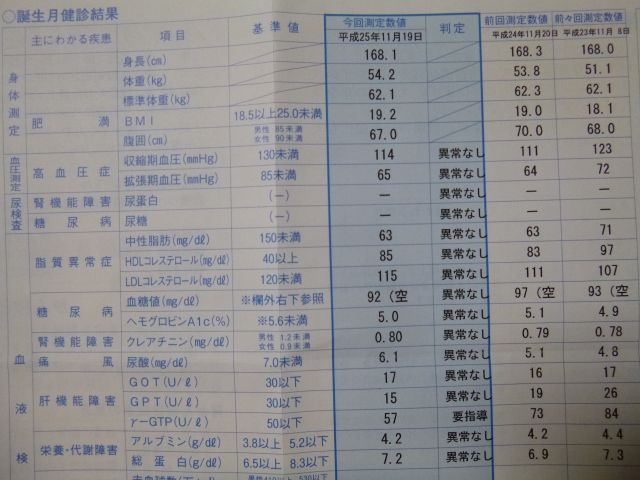 ○誕生月健診結果
主にわかる疾患 項目 基準値 今回測定数値 平成25年11月19日 判定 前回測定数値 平成24年11月20日 前々回測定数値 平成23年11月 8日
身体測定 身長(cm) 168.1 168.3 168.0
体重(kg) 54.2 53.8 51.1
標準体重(kg) 62.1 62.3 62.1
肥満 BMI 18.5以上25.0未満 19.2 19.0 18.1
腹囲(cm) 男性 85未満 女性 90未満 67.0 70.0 68.0
血圧測定 高血圧症 収縮期血圧(mmHg) 130未満 114 異常なし 111 123
拡張期血圧(mmHg) 85未満 65 異常なし 64 72
尿検査 腎機能障害 尿蛋白 (−) − 異常なし − −
糖尿病 尿糖 (−) − 異常なし − −
血液検 脂質異常症 中性脂肪(mg/dℓ) 150未満 63 異常なし 63 71
HDLコレステロール(mg/dℓ) 40以上 85 異常なし 83 97
LDLコレステロール(mg/dℓ) 120未満 115 異常なし 111 107
糖尿病 血糖値(mg/dℓ) ※欄外右下参照 92(空 異常なし 97(空 93(空
ヘモグロビンA1c(%) ※5.6未満 5.0 異常なし 5.1 4.9
腎機能障害 クレアチニン(mg/dℓ) 男性 1.2未満 女性 0.9未満 0.80 異常なし 0.79 0.78
痛風 尿酸(mg/dℓ) 7.0未満 6.1 異常なし 5.1 4.8
肝機能障害 GOT(U/ℓ) 30以下 17 異常なし 16 17
GPT(U/ℓ) 30以下 15 異常なし 19 26
γ−GTP(U/ℓ) 50以下 57 要指導 73 84
栄養・代謝障害 アルブミン(g/dℓ) 3.8以上 5.2以下 4.2 異常なし 4.2 4.4
総蛋白(g/dℓ) 6.5以上 8.3以下 7.2 異常なし 6.9 7.3